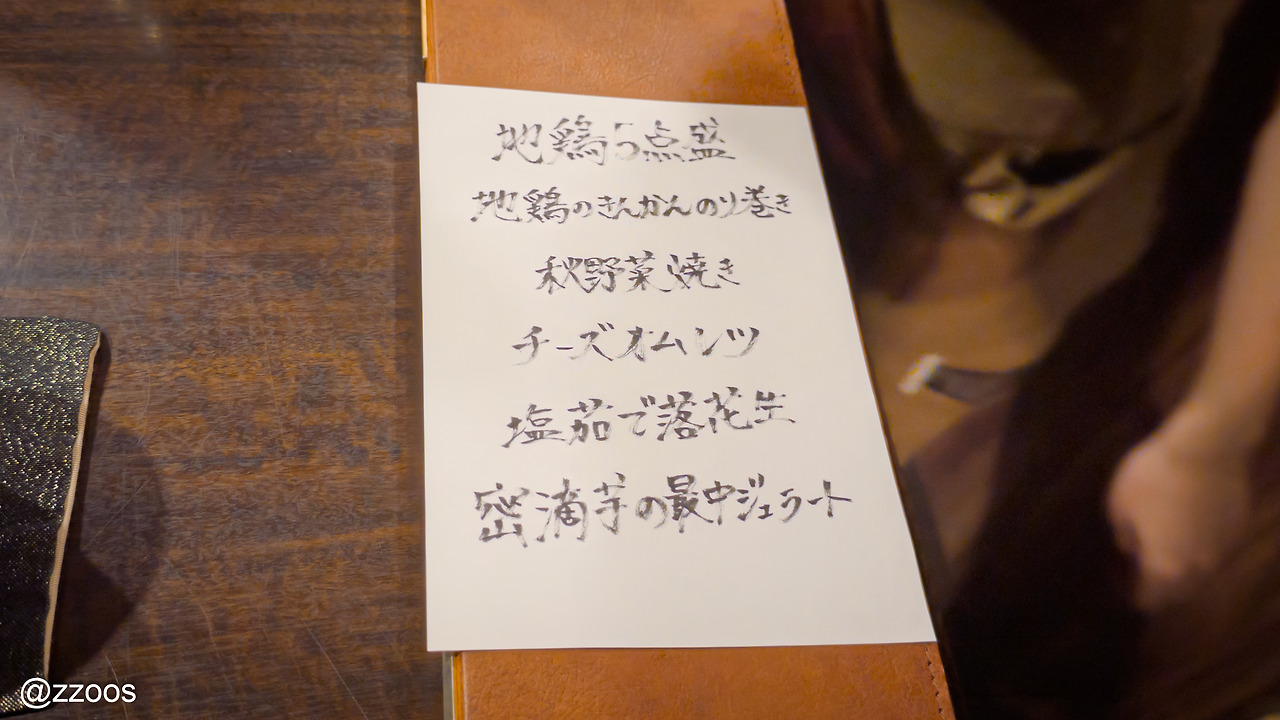 地鶏5点盛
地鶏のきんかんのり巻き
秋野菜焼き
チーズオムレツ
塩茹で落花生
密滴芋の最中ジェラート
@zzoos